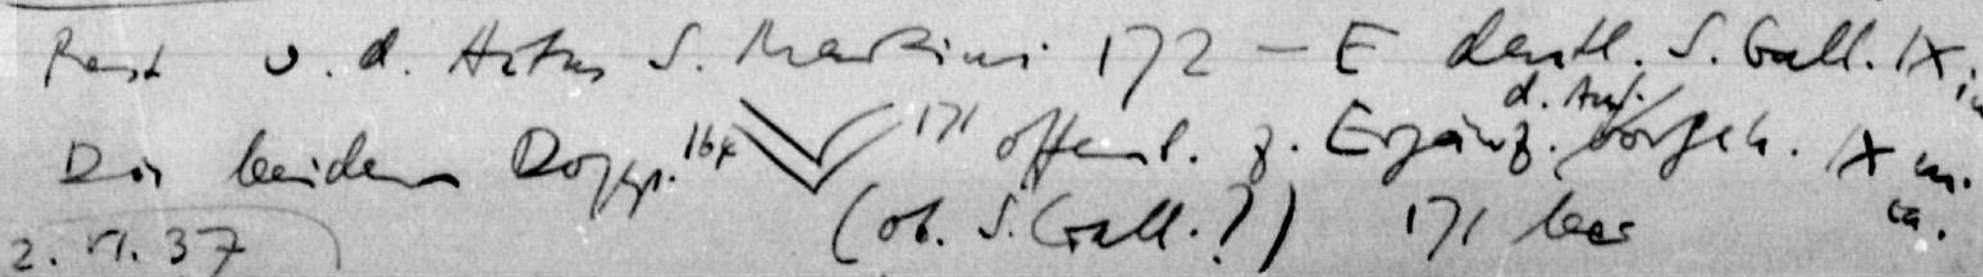 Rest v. d. Hs S. Martini 172 – E deutl. S. Gall. IX in
Die beiden Dopp. 164 171 offenb. z. Ergänz. d. Anf. vorgeh. IX m. ca.
(ob. S. Gall.?) 171 leer
2. VI. 37